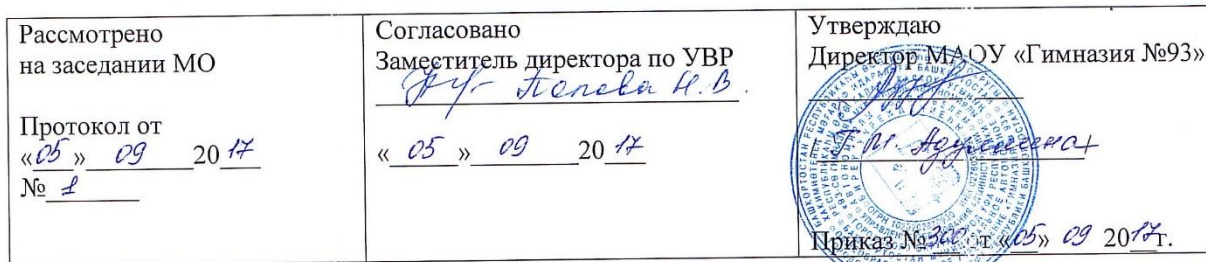 Рассмотрено
на заседании МО
Протокол от
«05» 09 2017
№ 1
Согласовано
Заместитель директора по УВР
Попова Н.В.
«05» 09 2017
Утверждаю
Директор МАОУ «Гимназия №93»
Приказ №300 от «05» 09 2017г.